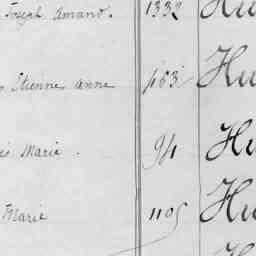 Joseph Amand. 1332 Hu
Etienne Anne 1163 Hu
Marie . 94 Hu
Marie 1105 Hu